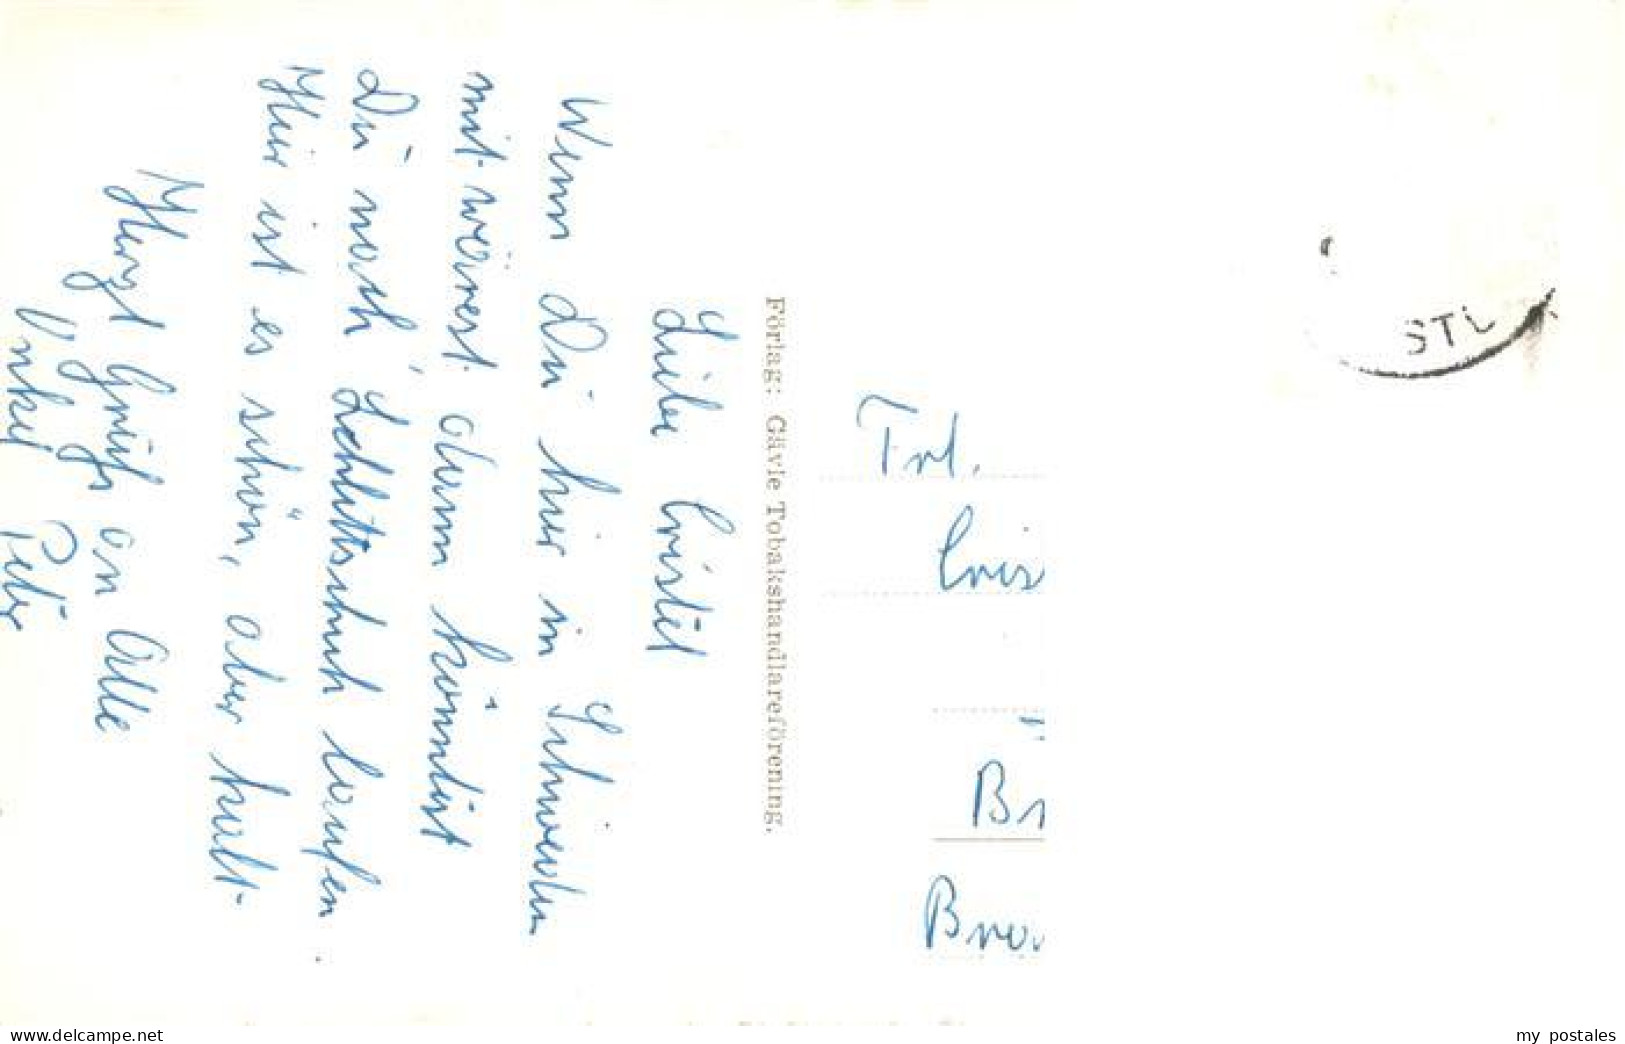 Liebe Cristel
Wenn Du hier in Schweden
mit wärest, dann könntest
Du noch Schlittschuh laufen.
Hier ist es schön, aber kalt.
Herzl Grüße an Alle
Onkel Peter
Förlag: Gävle Tobakshandlareförening.
Frl.
Cris
Br
Bre
STL
delcampe.net
my postales